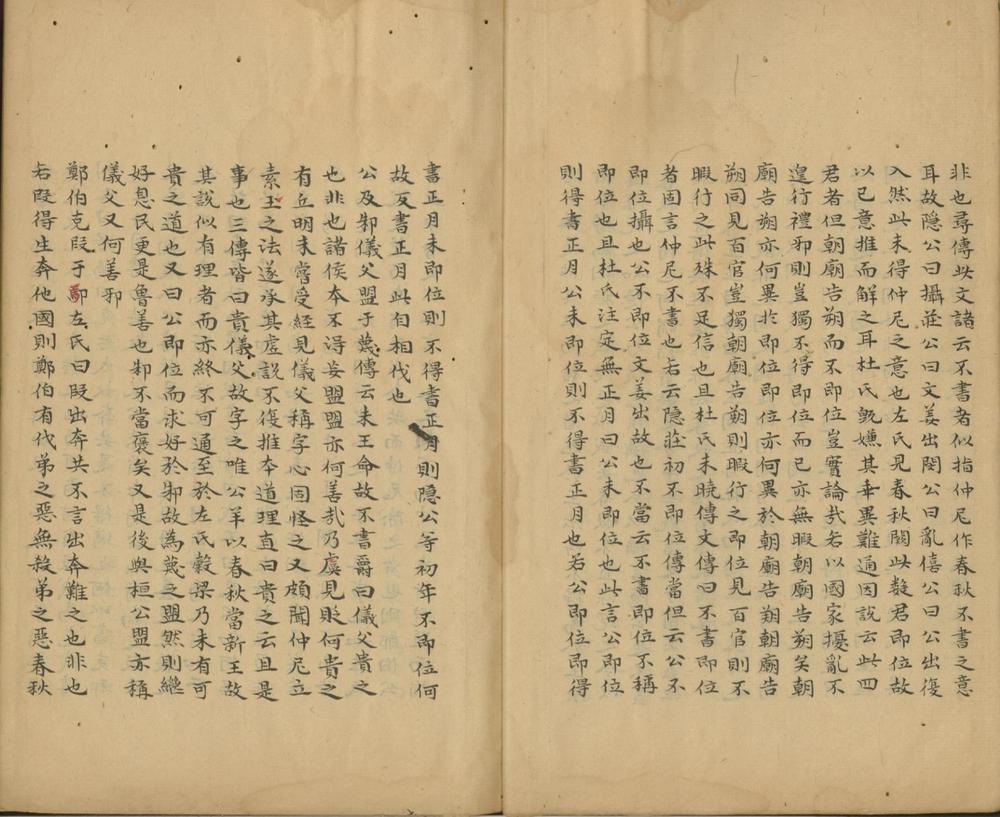 非也尋傳此文諸云不書者似指仲尼作春秋不書之意
耳故隐公曰攝莊公曰文姜出閔公曰亂僖公曰公出復
入然此未得仲尼之意也左氏見春秋闕此數君即位故
以已意推而解之耳杜氏既嫌其乖異難通因説云此四
君者但朝廟告朔而不即位豈實論㢤若以國家擾亂不
遑行禮邪則豈獨不得即位而已亦無暇朝廟告朔矣朝
廟告朔亦何異於即位即位亦何異於朝廟告朔朝廟告
朔同見百官豈獨朝廟告朔則暇行之即位見百官則不
暇行之此殊不足信也且杜氏未曉傳文傳曰不書即位
者固言仲尼不書也若云隐莊初不即位傳當但云公不
即位攝也公不即位文姜出故也不當云不書即位不稱
即位也且杜氏注定無正月曰公未即位也此言公即位
則得書正月公未即位則不得書正月也若公即位即得
書正月未即位則不得書正月則隐公等初年不即位何
故反書正月此自相伐也
公及邾儀父盟于蔑傳云未王命故不書爵曰儀父貴之
也非也諸侯本不得妄盟盟亦何善㢤乃虞見貶何貴之
有丘明未嘗受經見儀父稱字心固怪之又頗聞仲尼立
素王之法遂承其虛説不復推本道理直曰貴之云且是
事也三傳皆曰貴儀父故字之唯公羊以春秋當新王故
其説似有理者而亦終不可通至於左氏穀梁乃未有可
貴之道也又曰公即位而求好於邾故為蔑之盟然則繼
好息民更是魯善也邾不當襃矣又是後與桓公盟亦稱
儀父又何善邪
鄭伯克段于鄢左氏曰段出奔共不言出奔難之也非也
若段得生奔他國則鄭伯有伐弟之惡無殺弟之惡春秋